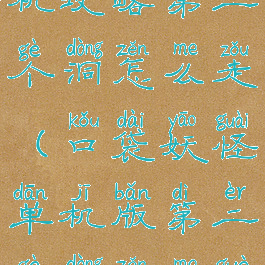 机攻略第二
gè dòng zěn me zǒu
个洞怎么走
kǒu dài yāo guài
（口袋妖怪
dān jī bǎn dì èr
单机版第二
gè dòng zěn me zǒu